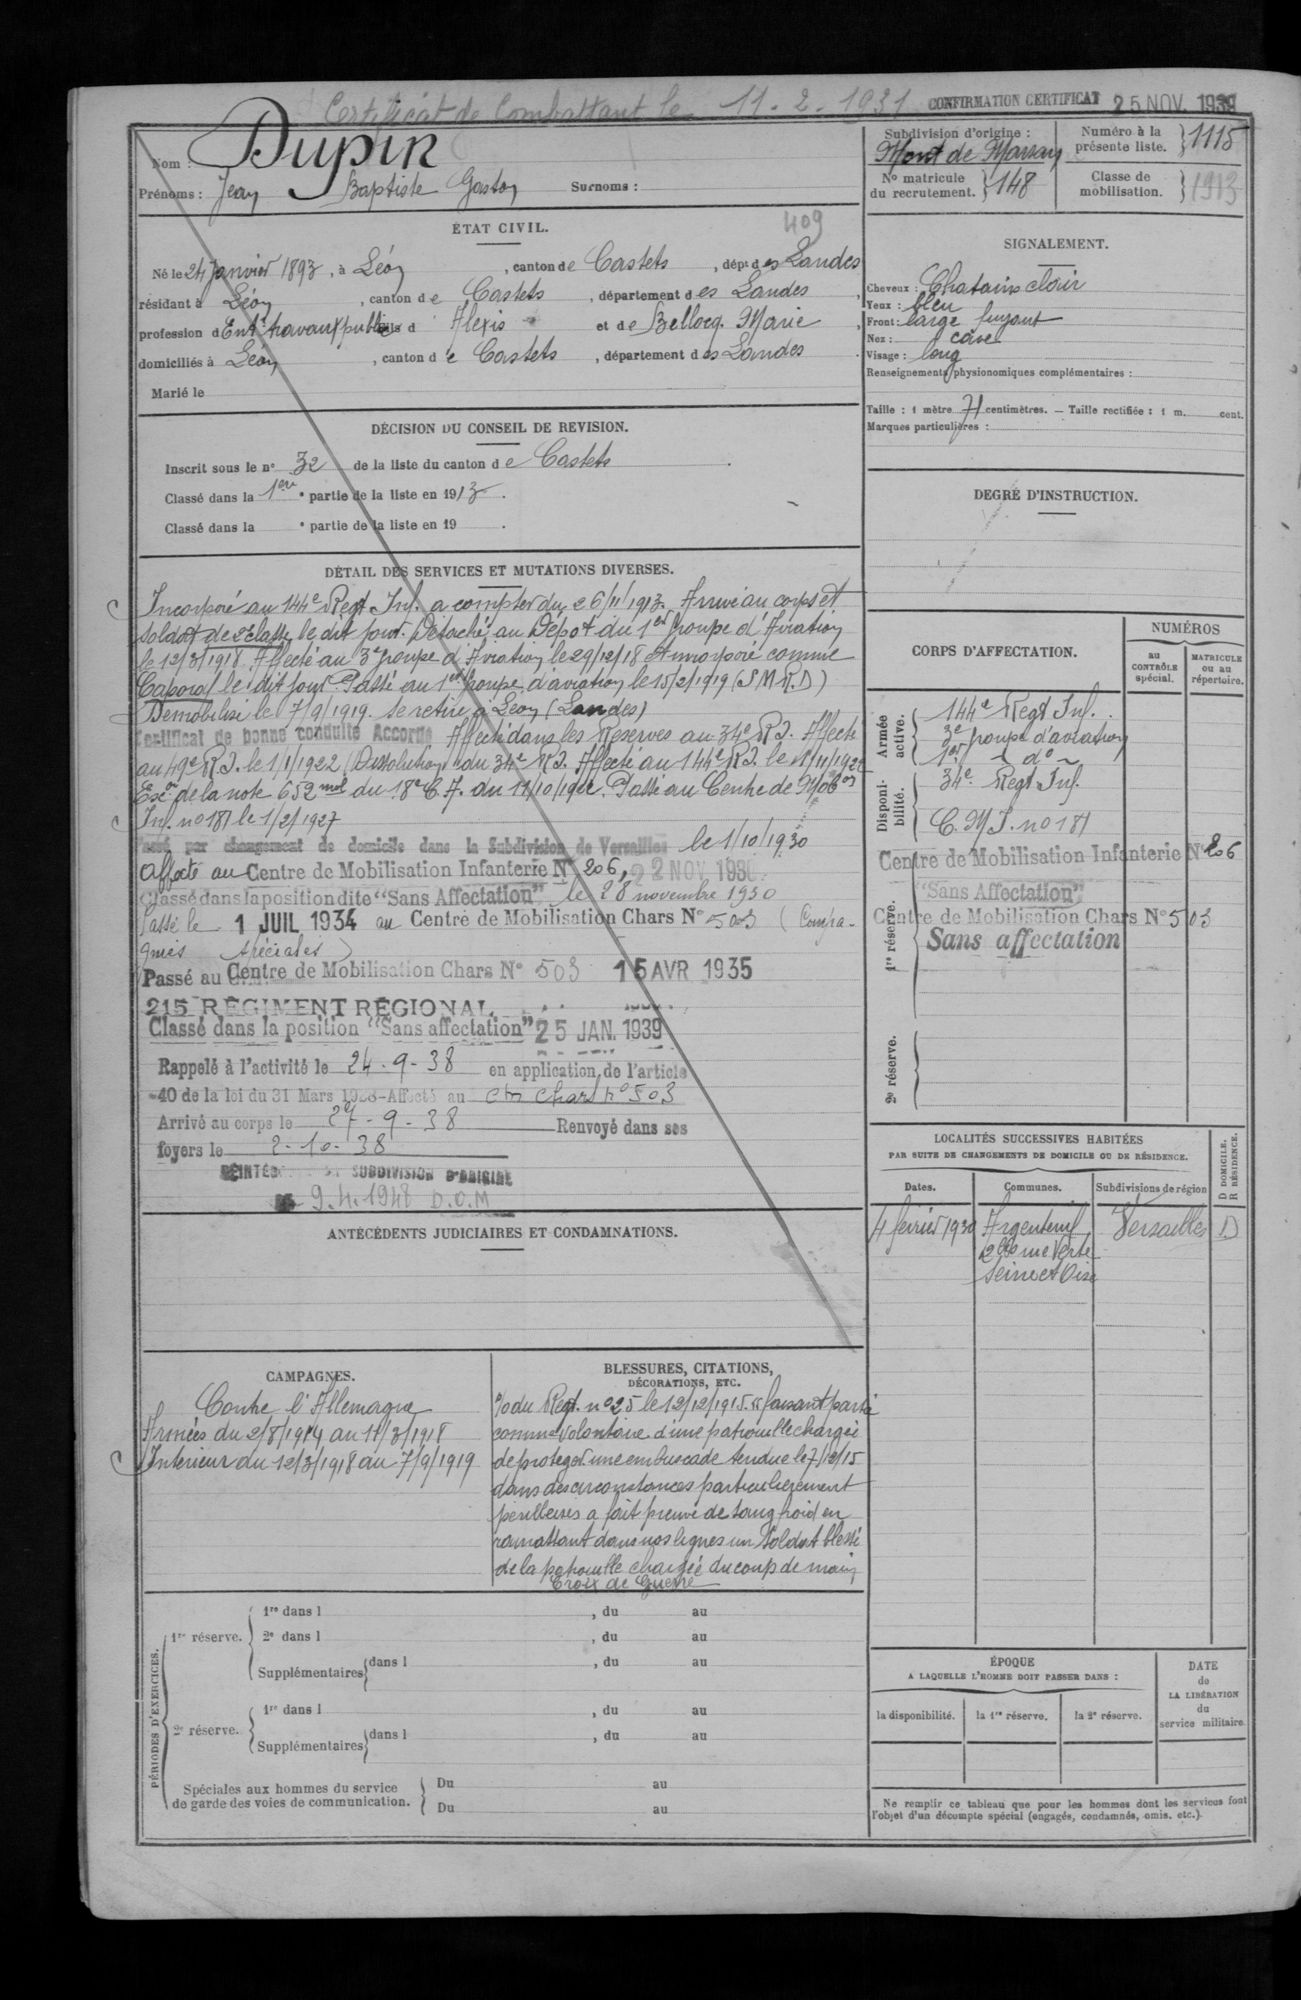 Certificat de Combattant le 11-2-1931 CONFIRMATION CERTIFICAT 25 NOV. 1939
Nom : Dupin
Prénoms : Jean Baptiste Gaston Surnoms :
409
ÉTAT CIVIL.
Né le 24 Janvier 1893, à Léon, canton de Castets, dépt des Landes
résidant à Léon, canton de Castets, département des Landes,
profession d'Entr travaux publics fils d Alexis et de Bellocq Marie,
domiciliés à Léon, canton de Castets, département des Landes.
Marié le
DÉCISION DU CONSEIL DE REVISION.
Inscrit sous le n° 32 de la liste du canton de Castets.
Classé dans la 1ere partie de la liste en 1913.
Classé dans la e partie de la liste en 19 .
DÉTAIL DES SERVICES ET MUTATIONS DIVERSES.
Incorporé au 144e Regt Inf. a compter du 26/11/1913. Arrivé au corps et
soldat de 2e classe le dit jour. Détaché au Dépot du 1er groupe d'Aviation
le 12/3/1918. Affecté au 3e groupe d'Aviation le 29/12/18 et incorporé comme
Caporal le dit jour. Passé au 1er groupe d'aviation le 15/2/1919 (S M R. D)
Démobilisé le 7/9/1919. se retire à Léon (Landes)
Certificat de bonne conduite Accordé Affecté dans les Réserves au 34e R.I. Affecté
au 49e R.I. le 1/1/1922 (Dissolution du 34e R.I. Affecté au 144e R.I. le 11/1922
Exon de la note 652 mob du 18e C.A. du 11/10/1922. Passé au Centre de Mobon
Inf. no 181 le 1/2/1927
Passé par changement de domicile dans la Subdivision de Versailles le 1/10/1930
affecté au Centre de Mobilisation Infanterie N° 206, 22 NOV. 1930
Classé dans la position dite "Sans Affectation" le 28 novembre 1930
Passé le 1 JUIL 1934 au Centre de Mobilisation Chars N° 503 (Compa-
gnies spéciales)
Passé au Centre de Mobilisation Chars N° 503 15 AVR 1935
215 RÉGIMENT RÉGIONAL
Classé dans la position "Sans affectation" 25 JAN. 1939
Rappelé à l'activité le 24-9-38 en application de l'article
40 de la loi du 31 Mars 1928-Affecté au Chars n° 503
Arrivé au corps le 27-9-38 Renvoyé dans ses
foyers le 2-10-38
SUBDIVISION D'ORIGINE
9.4.1948 D.O.M
ANTÉCÉDENTS JUDICIAIRES ET CONDAMNATIONS.
CAMPAGNES.
Contre l'Allemagne
Armées du 2/8/1914 au 11/3/1918
Intérieur du 12/3/1918 au 7/9/1919
BLESSURES, CITATIONS,
DÉCORATIONS, ETC.
O/o du Regt. no 25 le 12/12/1915. "faisant partie
comme volontaire d'une patrouille chargée
de protéger une embuscade tendue le 7/12/15
dans des circonstances particulierement
perilleuses a fait preuve de sang froid en
ramattant dans nos lignes un Soldat blessé
de la patrouille chargée du coup de main
Croix de Guerre
PÉRIODES D'EXERCICES.
1re réserve.
1re dans l , du au
2e dans l , du au
Supplémentaires dans l , du au
2e réserve.
1re dans l , du au
Supplémentaires dans l , du au
Spéciales aux hommes du service
de garde des voies de communication.
Du au
Du au
Subdivision d'origine :
Mont de Marsan
Numéro à la
présente liste. 1115
N° matricule
du recrutement. 148
Classe de
mobilisation. 1913
SIGNALEMENT.
Cheveux : Chatains clair
Yeux : bleu
Front : large fuyant
Nez : cave
Visage : long
Renseignements physionomiques complémentaires :
Taille : 1 mètre 71 centimètres. — Taille rectifiée : 1 m. cent.
Marques particulières :
DEGRÉ D'INSTRUCTION.
CORPS D'AFFECTATION.
NUMÉROS
au
CONTRÔLE
spécial.
MATRICULE
ou au
répertoire.
Armée
active.
144e Regt Inf.
3e groupe d'aviation
1er d°
Disponi-
bilité.
34e Regt Inf.
C.M.I. no 181
1re réserve.
Centre de Mobilisation Infanterie N° 206
"Sans Affectation"
Centre de Mobilisation Chars N° 503
Sans affectation
2e réserve.
LOCALITÉS SUCCESSIVES HABITÉES
PAR SUITE DE CHANGEMENTS DE DOMICILE OU DE RÉSIDENCE.
D DOMICILE.
R RÉSIDENCE.
Dates. Communes. Subdivisions de région
4 février 1930 Argenteuil Versailles D
rue Verte
Seine et Oise
ÉPOQUE
A LAQUELLE L'HOMME DOIT PASSER DANS :
la disponibilité. la 1re réserve. la 2e réserve.
DATE
de
LA LIBÉRATION
du
service militaire.
Ne remplir ce tableau que pour les hommes dont les services font
l'objet d'un décompte spécial (engagés, condamnés, omis, etc.).